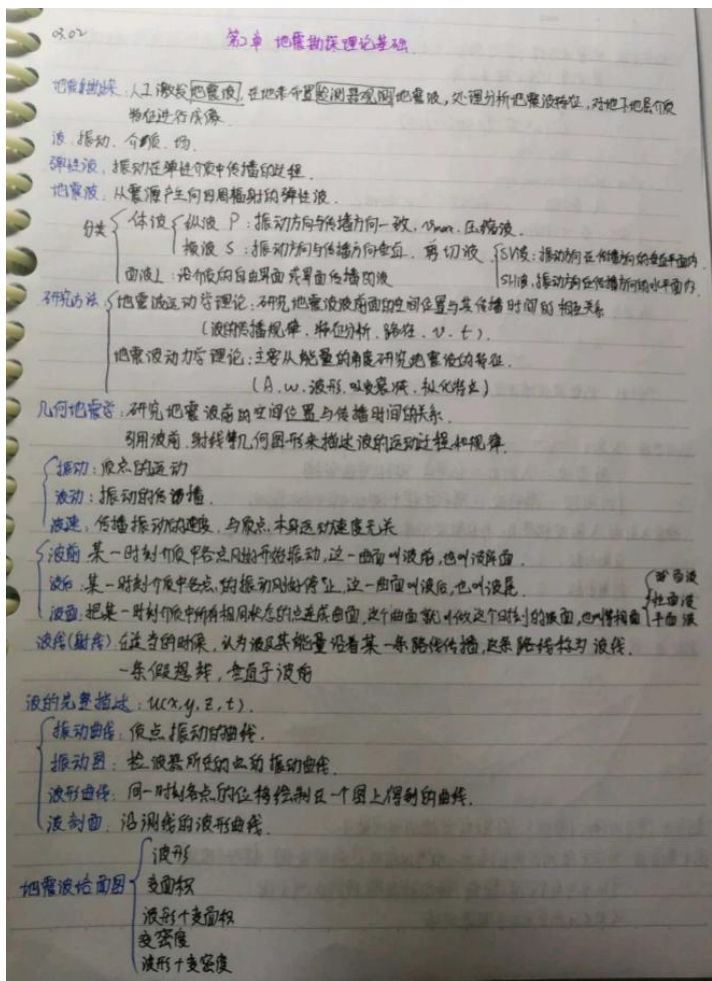 第2章 地震勘探理论基础
地震勘探:人工激发地震波,在地表布置检测器观测地震波,处理分析地震波特征,对地下地层介质
特征进行成像.
波:振动、介质、场.
弹性波:振动在弹性介质中传播的过程.
地震波:从震源产生向四周辐射的弹性波.
分类 体波 纵波 P:振动方向与传播方向一致,vmax,压缩波.
横波 S:振动方向与传播方向垂直,剪切波 SV波:振动方向在传播方向的垂直平面内.
SH波:振动方向在传播方向的水平面内.
面波L:沿介质的自由界面或界面传播的波
研究方法 地震波运动学理论:研究地震波波前面的空间位置与其传播时间的相互关系
(波的传播规律、特征分析、路径、v、t).
地震波动力学理论:主要从能量的角度研究地震波的特征.
(A、w、波形、吸收衰减、极化特点)
几何地震学:研究地震波前的空间位置与传播时间的关系.
引用波前、射线等几何图形来描述波的运动过程和规律.
振动:质点的运动
波动:振动的传播.
波速:传播振动的速度,与质点本身运动速度无关
波前:某一时刻介质中各点刚好开始振动,这一曲面叫波前,也叫波阵面.
波后:某一时刻介质中各点的振动刚好停止,这一曲面叫波后,也叫波尾.
波面:把某一时刻介质中所有相同状态的点连成曲面,这个曲面就叫做这个时刻的波面,也叫等相面 球面波
柱面波
平面波
波线(射线):在适当的时候,认为波及其能量沿着某一条路线传播,这条路线称为波线.
一条假想线,垂直于波前
波的完整描述:u(x,y,z,t).
振动曲线:质点振动的曲线.
振动图:检波器所在的点的振动曲线.
波形曲线:同一时刻各点的位移绘制在一个图上得到的曲线.
波剖面:沿测线的波形曲线.
地震波绘面图 波形
变面积
波形+变面积
变密度
波形+变密度